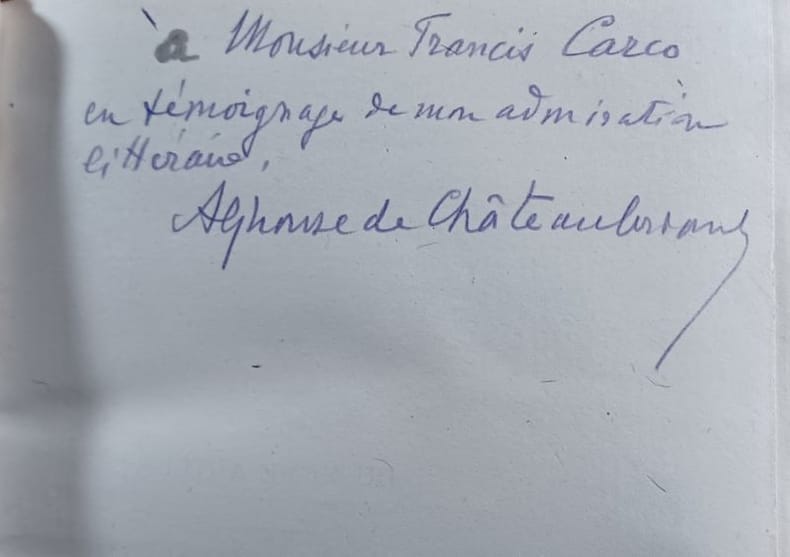 à Monsieur Francis Carco
en témoignage de mon admiration
littéraire,
Alphonse de Châteaubriant